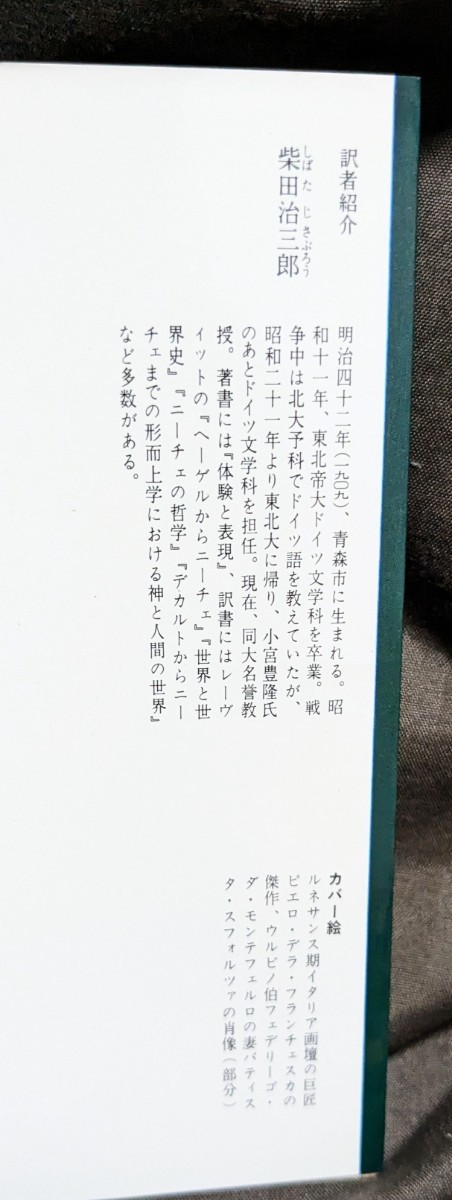 訳者紹介
しばた じさぶろう
柴田治三郎
明治四十二年(一九〇九)、青森市に生まれる。昭
和十一年、東北帝大ドイツ文学科を卒業。戦
争中は北大予科でドイツ語を教えていたが、
昭和二十一年より東北大に帰り、小宮豊隆氏
のあとドイツ文学科を担任。現在、同大名誉教
授。著書には『体験と表現』、訳書にはレーヴ
ィットの『ヘーゲルからニーチェ』『世界と世
界史』『ニーチェの哲学』『デカルトからニー
チェまでの形而上学における神と人間の世界』
など多数がある。
カバー絵
ルネサンス期イタリア画壇の巨匠
ピエロ・デラ・フランチェスカの
傑作、ウルビノ伯フェデリーゴ・
ダ・モンテフェルロの妻バティス
タ・スフォルツァの肖像(部分)